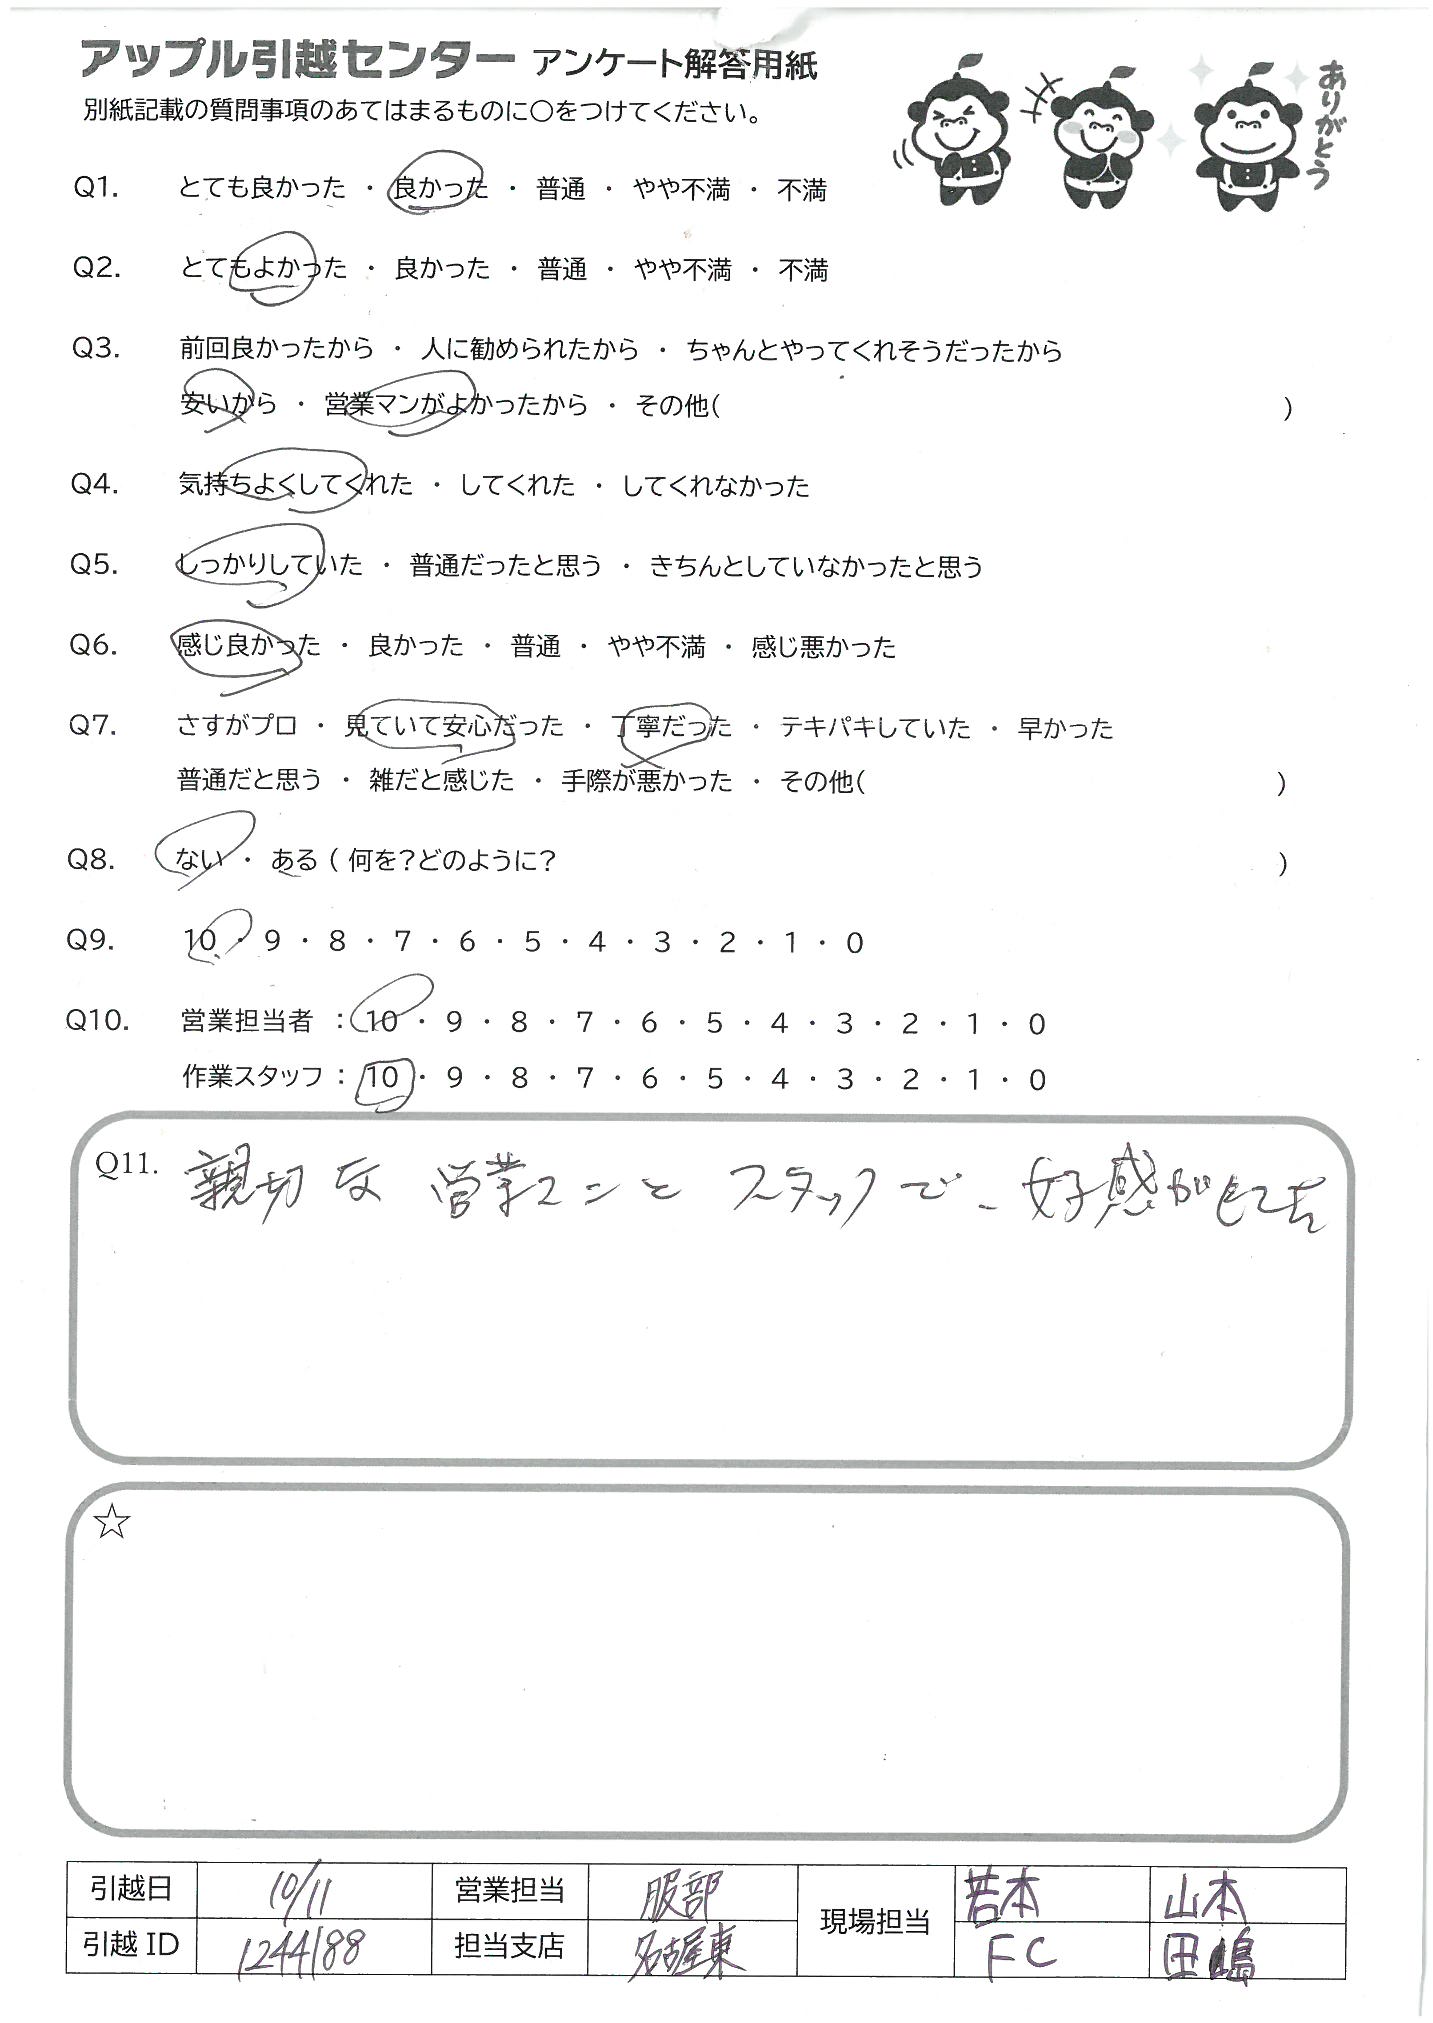 アップル引越センター アンケート解答用紙
別紙記載の質問事項のあてはまるものに〇をつけてください。
ありがとう
Q1. とても良かった ・ 良かった ・ 普通 ・ やや不満 ・ 不満
Q2. とてもよかった ・ 良かった ・ 普通 ・ やや不満 ・ 不満
Q3. 前回良かったから ・ 人に勧められたから ・ ちゃんとやってくれそうだったから
安いから ・ 営業マンがよかったから ・ その他( )
Q4. 気持ちよくしてくれた ・ してくれた ・ してくれなかった
Q5. しっかりしていた ・ 普通だったと思う ・ きちんとしていなかったと思う
Q6. 感じ良かった ・ 良かった ・ 普通 ・ やや不満 ・ 感じ悪かった
Q7. さすがプロ ・ 見ていて安心だった ・ 丁寧だった ・ テキパキしていた ・ 早かった
普通だと思う ・ 雑だと感じた ・ 手際が悪かった ・ その他( )
Q8. ない ・ ある ( 何を?どのように? )
Q9. 10 ・ 9 ・ 8 ・ 7 ・ 6 ・ 5 ・ 4 ・ 3 ・ 2 ・ 1 ・ 0
Q10. 営業担当者 : 10 ・ 9 ・ 8 ・ 7 ・ 6 ・ 5 ・ 4 ・ 3 ・ 2 ・ 1 ・ 0
作業スタッフ : 10 ・ 9 ・ 8 ・ 7 ・ 6 ・ 5 ・ 4 ・ 3 ・ 2 ・ 1 ・ 0
Q11. 親切な 営業マンと スタッフで、好感がもてた
☆
引越日 10/11 営業担当 服部 現場担当 若本 山本
引越ID 1244188 担当支店 名古屋東 FC 田嶋